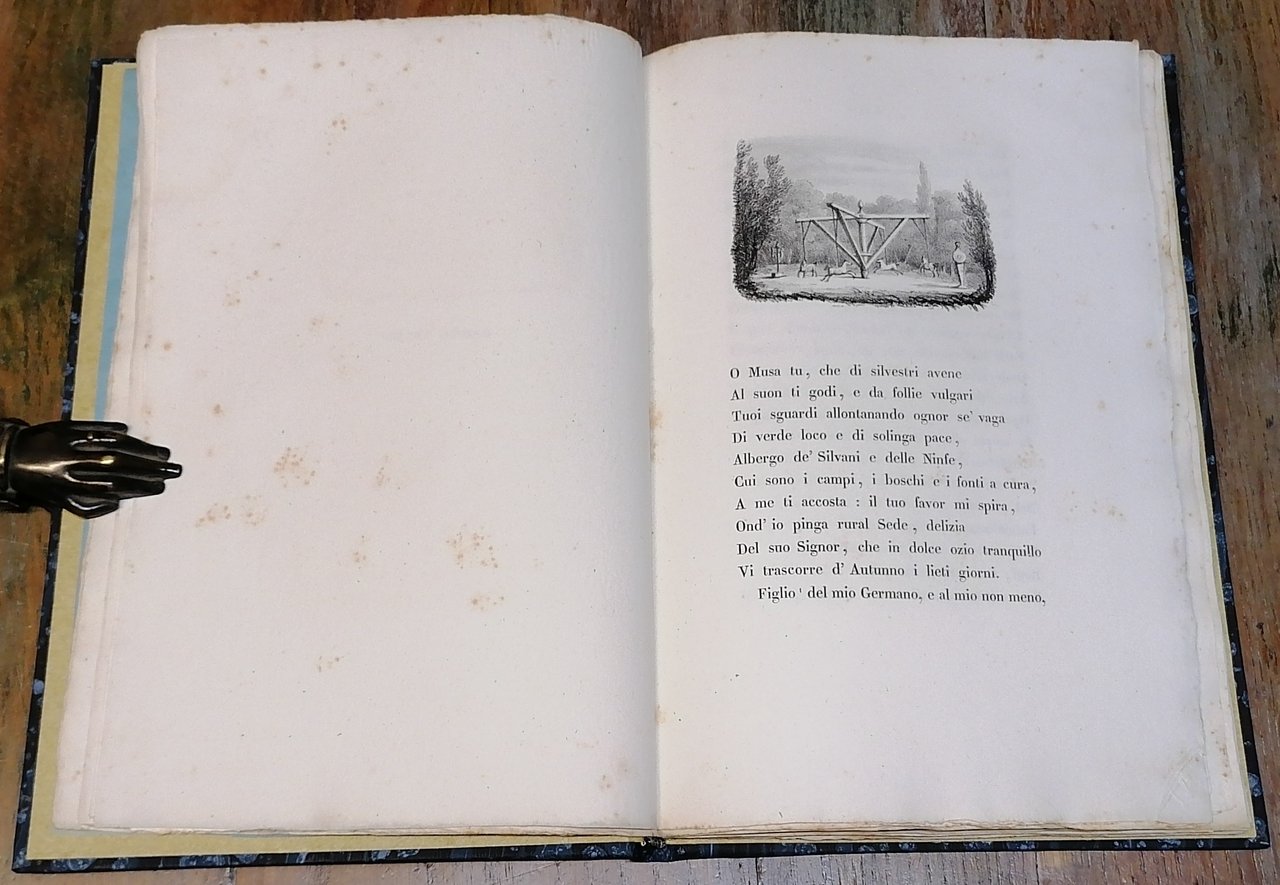 O Musa tu, che di silvestri avene
Al suon ti godi, e da follie vulgari
Tuoi sguardi allontanando ognor se' vaga
Di verde loco e di solinga pace,
Albergo de' Silvani e delle Ninfe,
Cui sono i campi, i boschi e i fonti a cura,
A me ti accosta : il tuo favor mi spira,
Ond' io pinga rural Sede, delizia
Del suo Signor, che in dolce ozio tranquillo
Vi trascorre d' Autunno i lieti giorni.
Figlio ¹ del mio Germano, e al mio non meno,